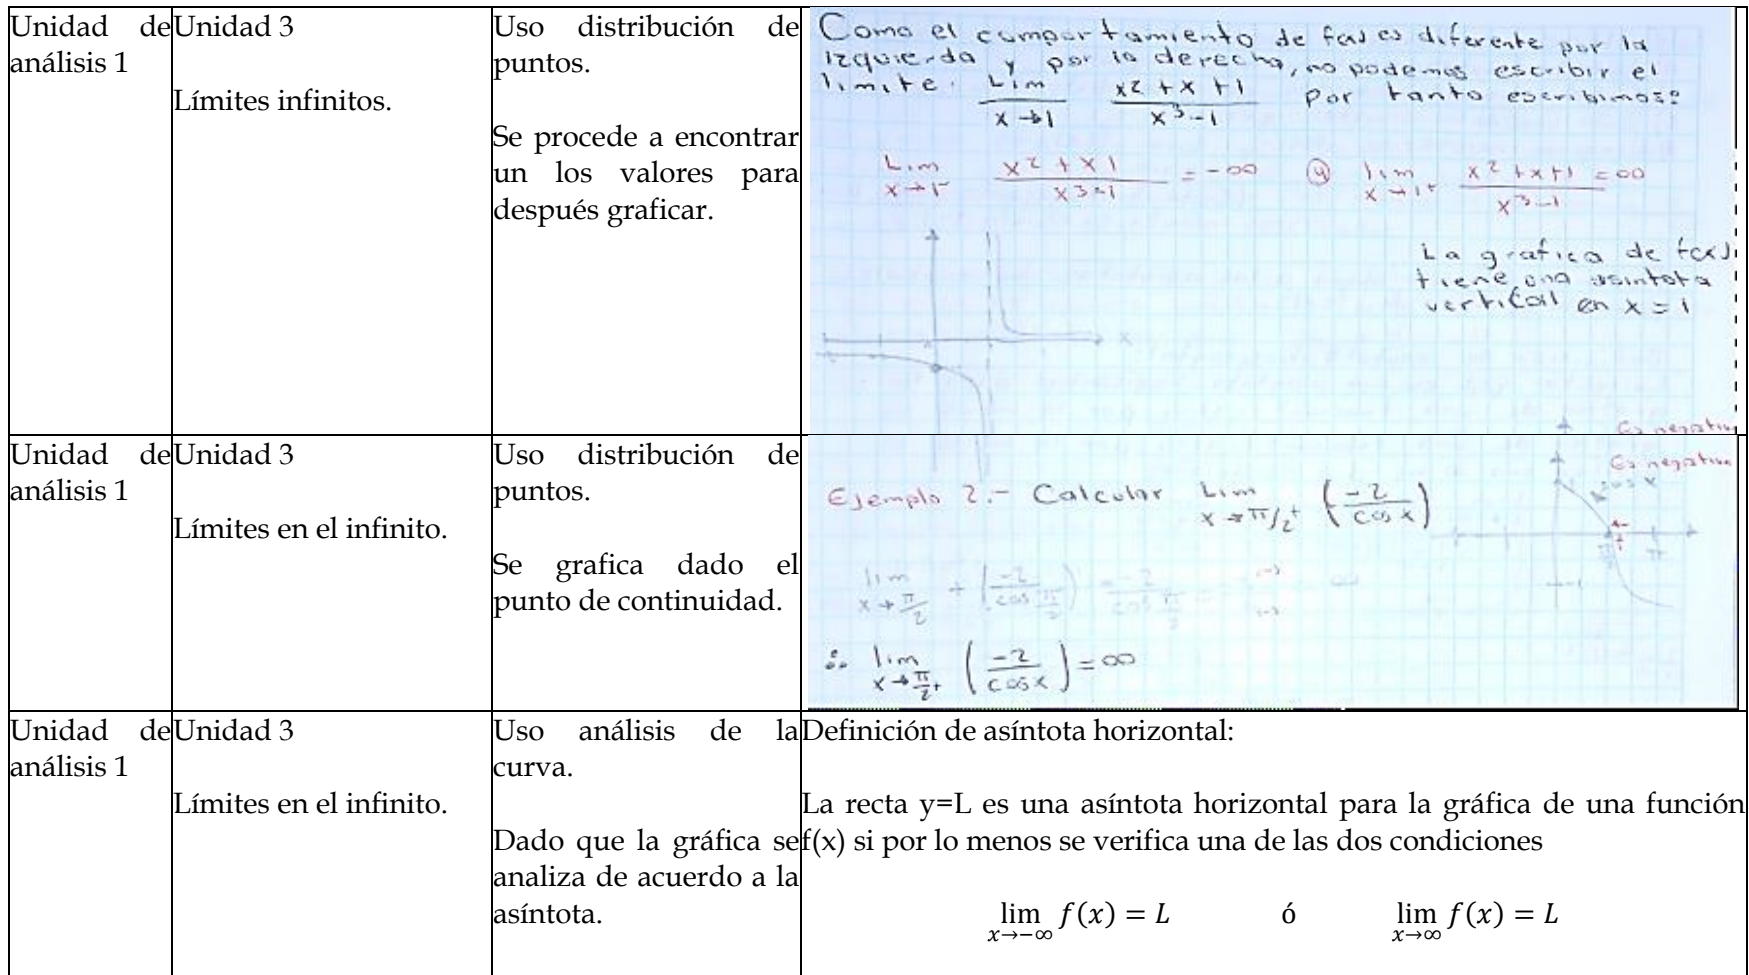 Unidad de
análisis 1
Unidad 3
Límites infinitos.
Uso distribución de
puntos.
Se procede a encontrar
un los valores para
después graficar.
Como el comportamiento de f(x) es diferente por la
izquierda y por la derecha, no podemos escribir el
limite. Lim x→1 x² + x + 1 / x³ - 1 Por tanto escribimos:
Lim x→1⁻ x² + x 1 / x³-1 = -∞ y lim x→1⁺ x² + x + 1 / x³-1 = ∞
La grafica de f(x)
tiene una asintota
vertical en x = 1
x
Es negativ
Unidad de
análisis 1
Unidad 3
Límites en el infinito.
Uso distribución de
puntos.
Se grafica dado el
punto de continuidad.
Es negativa
Ejemplo 2.- Calcular Lim x→π/2⁺ (-2 / cos x)
lim x→π/2 + (-2 / cos π/2) = -2 / cos π/2
∴ lim x→π/2⁺ (-2 / cos x) = ∞
Unidad de
análisis 1
Unidad 3
Límites en el infinito.
Uso análisis de la
curva.
Dado que la gráfica se
analiza de acuerdo a la
asíntota.
Definición de asíntota horizontal:
La recta y=L es una asíntota horizontal para la gráfica de una función
f(x) si por lo menos se verifica una de las dos condiciones
lim x→−∞ f(x) = L ó lim x→∞ f(x) = L